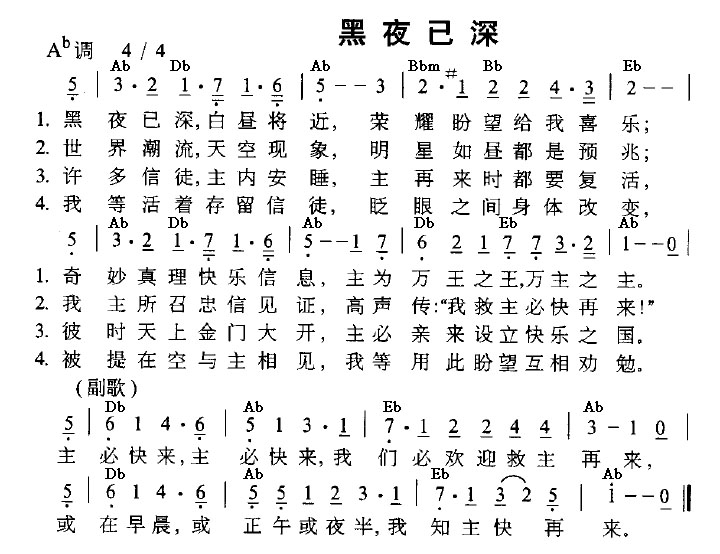 黑夜已深
A♭调 4 / 4
Ab Db Ab Bbm Bb Eb
5 | 3·2 1·7 1·6 | 5--3 | 2·#1 2 2 4·3 | 2--
1. 黑 夜已深,白昼将近, 荣耀盼望给我喜乐;
2. 世 界潮流,天空现象, 明星如昼都是预兆;
3. 许 多信徒,主内安睡, 主再来时都要复活,
4. 我 等活着存留信徒, 眨眼之间身体改变,
Ab Db Ab Db Eb Ab
5 | 3·2 1·7 1·6 | 5--1 7 | 6 2 1 7 7 3·2 | 1--0 |
1. 奇 妙真理快乐信息, 主为万王之王,万主之主。
2. 我 主所召忠信见证, 高声传:“我救主必快再来!”
3. 彼 时天上金门大开, 主必亲来设立快乐之国。
4. 被 提在空与主相见, 我等用此盼望互相劝勉。
(副歌)
Db Ab Eb Ab
5 | 6 1 4·6 | 5 1 3·1 | 7·1 2 2 4 4 | 3-1 0 |
主 必快来,主 必快来,我 们必欢迎救主再来,
Db Ab Eb Ab
5 | 6 1 4·6 | 5 5 1 2 3·1 | 7·1 3 2 5 | i--0 ||
或 在早晨,或 正午或夜半,我 知主快再来。